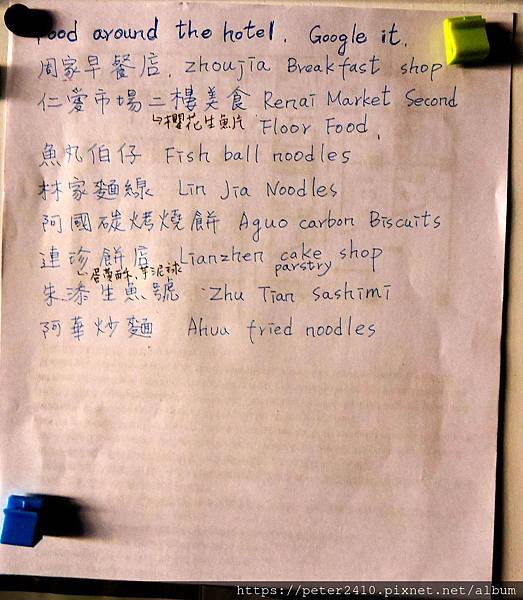 Food around the hotel. Google it.
周家早餐店. zhoujia Breakfast shop
仁愛市場二樓美食 Renai Market Second
↳櫻花生魚片 Floor Food.
魚丸伯仔 Fish ball noodles
林家麵線 Lin Jia Noodles
阿國碳烤燒餅 Aguo carbon Biscuits
連珍餅店 Lianzhen cake shop
蛋黃酥、芋泥球 parstry
朱添生魚號 Zhu Tian sashimi
阿華炒麵 Ahua fried noodles
https://peter2410.pixnet.net/album